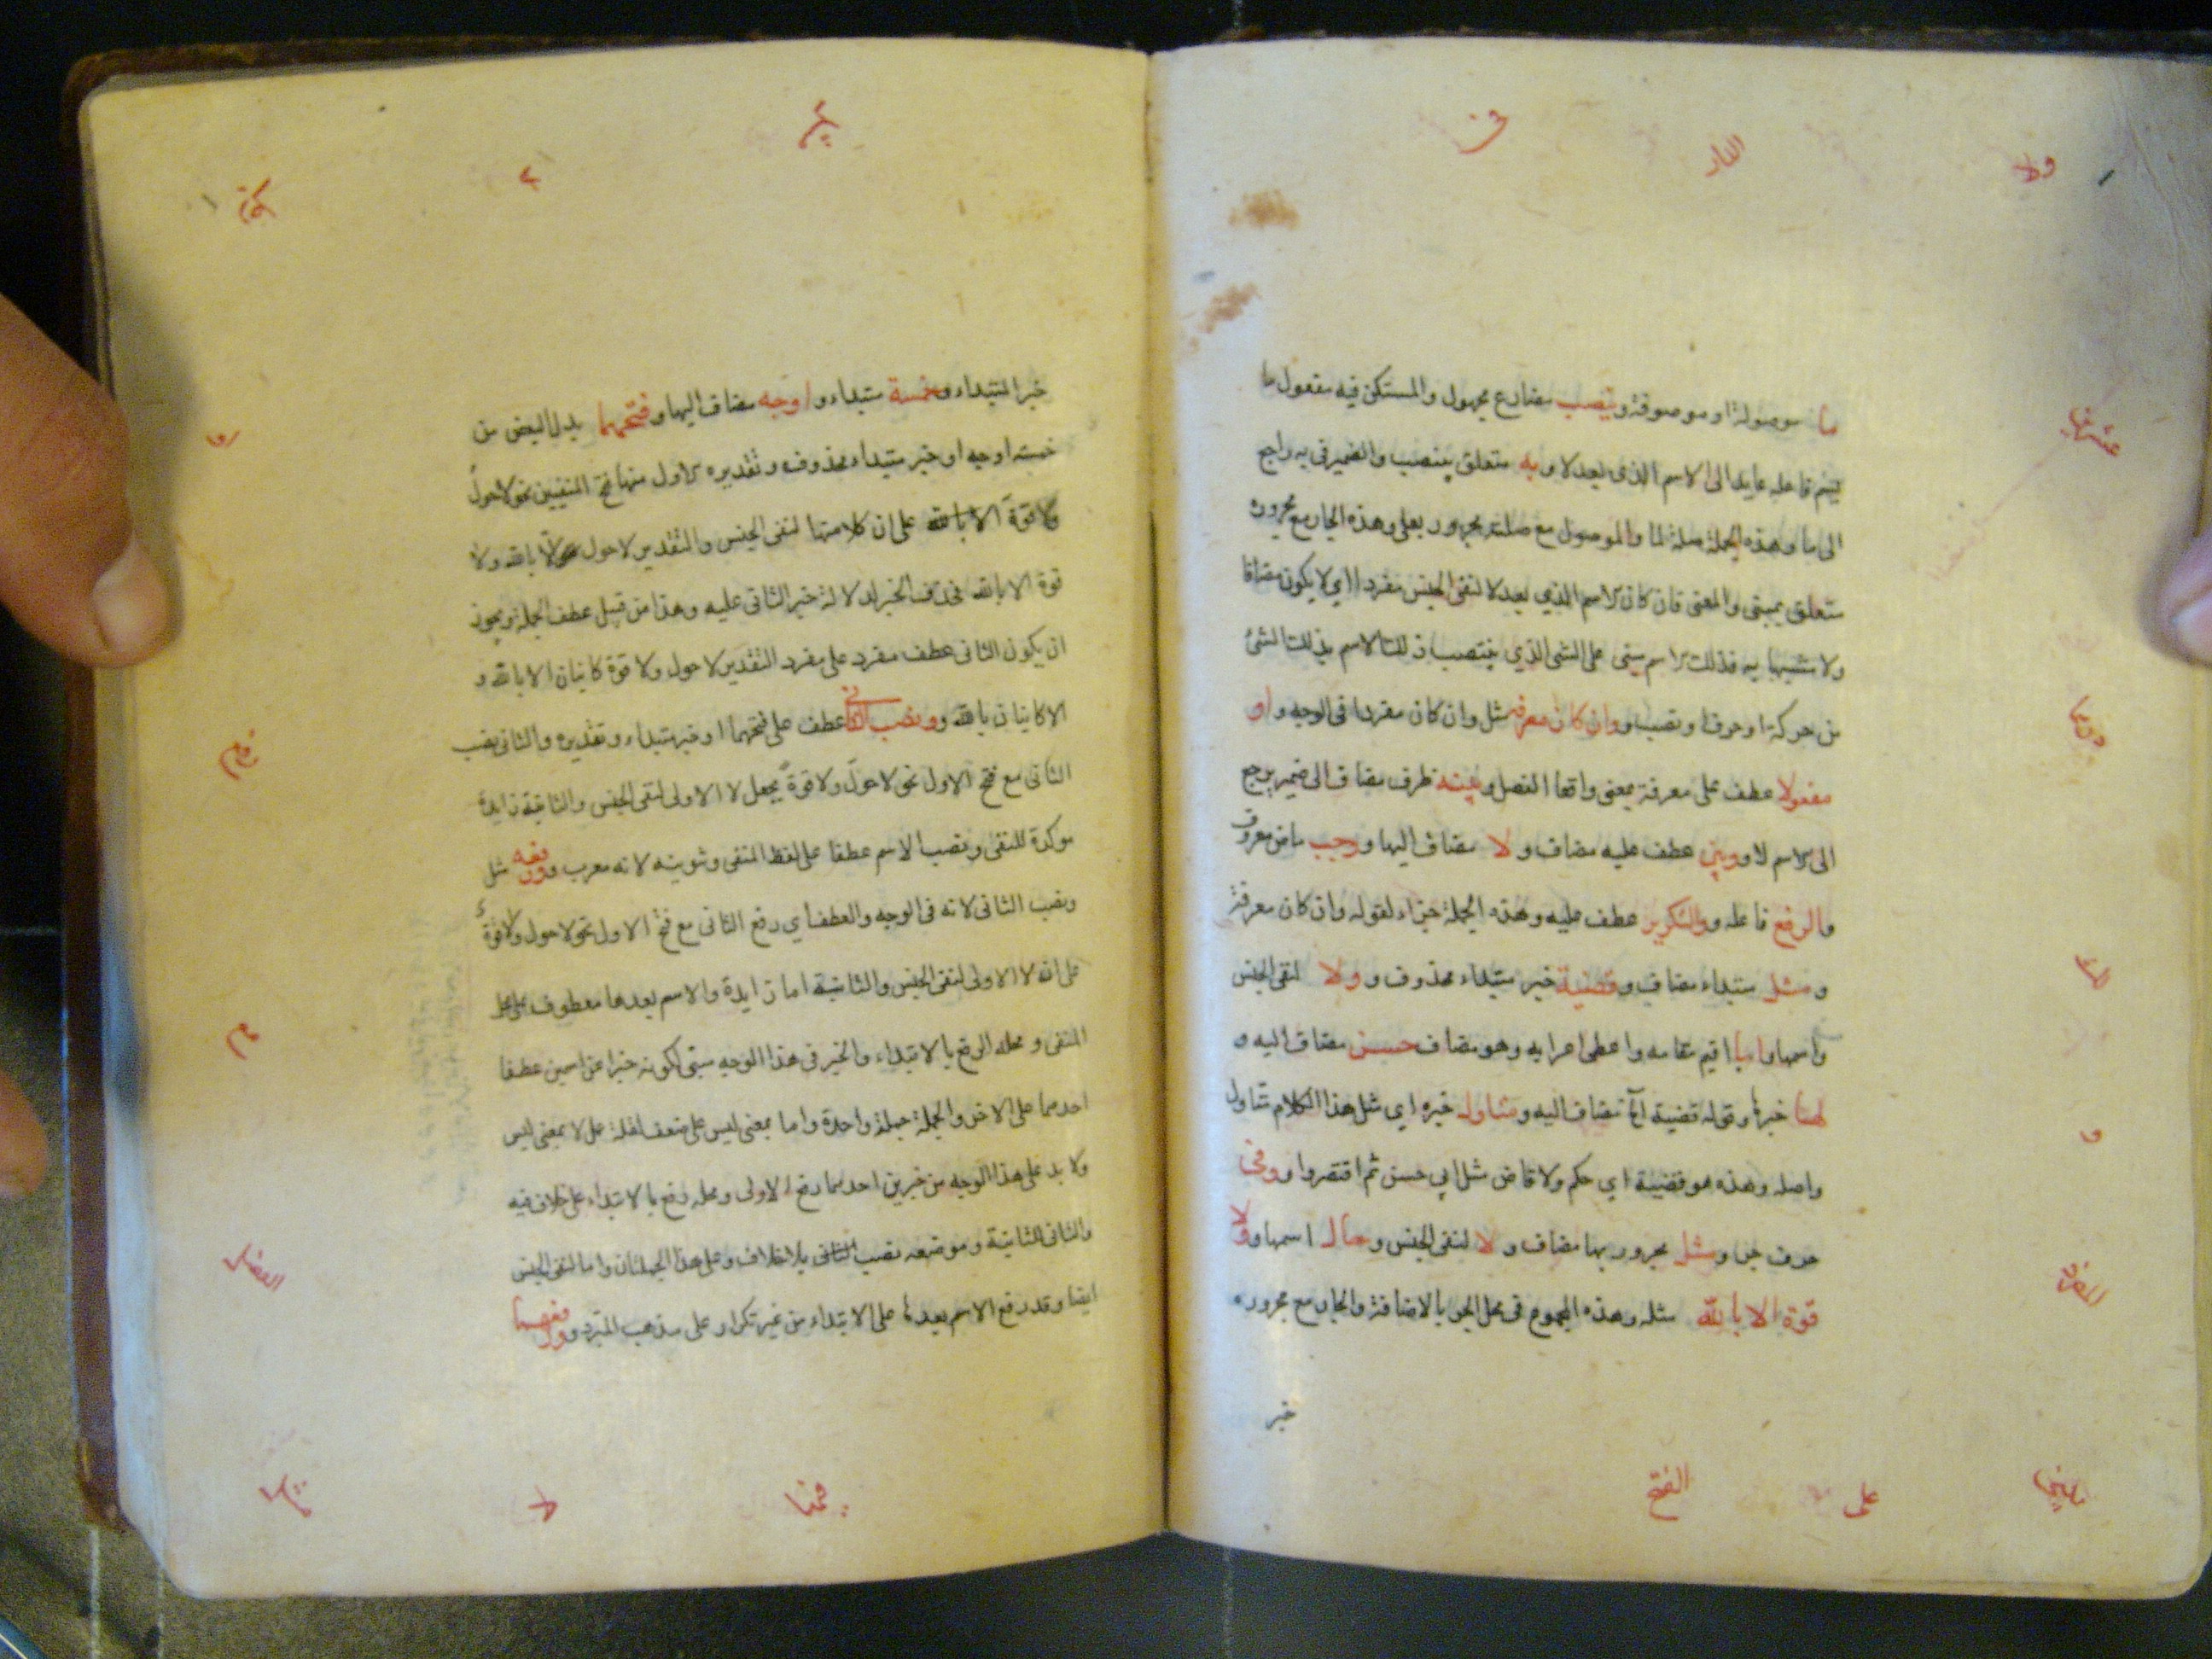 ما موصولة او موصوفة وينصب مضارع مجهول والمستكن فيه مفعول ما
يسم فاعله عايد الى الاسم الذى بعد لا وبه متعلق بينصب والضمير فى به راجع
الى ما وهذه الجملة صلة لما والموصول مع صلته مجرور بعلى وهذه الجار مع مجروره
متعلق بيبنى والمعنى فان كان الاسم الذي بعد لا لنفى الجنس مفردا اي لا يكون مضافا
ولا مشبها به فذلك الاسم يبنى على الشئ الذي ينتصب ذلك الاسم بذلك الشئ
من حركة او حرف او نصب او وان كان معرفة مثل وان كان مفردا فى الوجه و او
مفعولا عطف على معرفة بمعنى واقعا الفصل و بينه ظرف مضاف الى ضمير يرجع
الى الاسم لا و وبين عطف عليه مضاف و لا مضاف اليها و وجب ماض معروف
والرفع فاعله و والتكرير عطف عليه وهذه الجملة جزاء لقوله وان كان معرفة
و مثل مبتداء مضاف و قضية خبر مبتداء محذوف و ولا لنفى الجنس
واسمها و ابا اقيم مقامه واعطى اعرابه وهو مضاف حسن مضاف اليه و
لها خبرها وقوله قضية اه مضاف اليه و متاول خبره اي مثل هذا الكلام تتاول
واصله وهذه هو قضية اي حكم ولا قاض مثل ابي حسن ثم اقتصروا و وفى
حرف جر و مثل مجرور بها مضاف و لا لنفى الجنس و حال اسمها و ولا
قوة الا بالله مثله وهذه المجموع فى محل الجر بالاضافة والجار مع مجروره
خبر
خبر المبتداء و خمسة مبتداء و اوجه مضاف اليها و فتحهما بدل البعض من
خمسة اوجه او خبر مبتداء محذوف وتقديره الاول منها فتح المنفيين نحو لا حول
ولا قوة الا بالله على ان كلا منهما لنفى الجنس والتقدير لا حول الا بالله ولا
قوة الا بالله فحذف الخبر لدلالة خبر الثانى عليه وهذا من قبيل عطف الجملة ويجوز
ان يكون الثانى عطف مفرد على مفرد التقدير لا حول ولا قوة كاينان الا بالله و
الا كاينان بالله و ونصب الثانى عطف على فتحهما او خبر مبتداء وتقديره والثانى نصب
الثانى مع فتح الاول نحو لا حول ولا قوة يجعل لا الاولى لنفى الجنس والثانية زايدة
موكدة للنفى ونصب الاسم عطفا على لفظ المنفى وتنوينه لانه معرب و ورفعه مثل
ونصب الثانى لانه فى الوجه والعطف اي رفع الثانى مع فتح الاول نحو لا حول ولا قوة
على انه لا الاولى لنفى الجنس والثانية اما زايدة والاسم بعدها معطوف على محل
المنفى و محله الرفع بالابتداء والخبر فى هذا الوجه مبنى لكونه خبرا عن اسمين عطفا
احدهما على الاخر والجملة جملة واحدة واما بمعنى ليس على ضعف لقلة عمل لا بمعنى ليس
ولا بد على هذا الوجه من خبرين احدهما رفع الاولى ومحله رفع بالابتداء على خلاف فيه
والثانى الثانية وموضعه نصب بلا خلاف وعلى هذا الجملتان واما لنفى الجنس
ايضا وقد رفع الاسم بعدها على الابتداء من غير تكرار على مذهب المبرد و ورفعهما
ولا
و
على
الفتح
لا